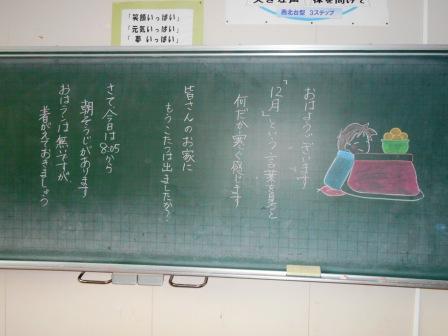 「笑顔いっぱい」
「元気いっぱい」
「夢いっぱい」
西北台型 3ステップ
おはようございます
「12月」という言葉を見ると
何だか寒く感じます
皆さんのお家に
もうこたつは出ましたか？
さて、今日は8:05から
朝そうじがあります
おはランは無いですが、
着がえておきましょう